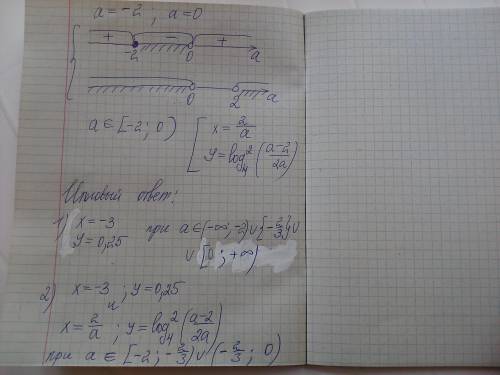 a=-2 , a=0
+ - +
-2 0 a
0 2 a
a ∈ [-2; 0) [ x = 2/a
y = log₄²((a-2)/2a)
Итоговый ответ:
1) x=-3
y=0,25 при a∈(-∞;-2)∪{-2/3}∪
∪[0;+∞)
2) x=-3 и y=0,25
x=2/a ; y=log₄²((a-2)/2a)
при a ∈ [-2; -2/3)∪(-2/3; 0)